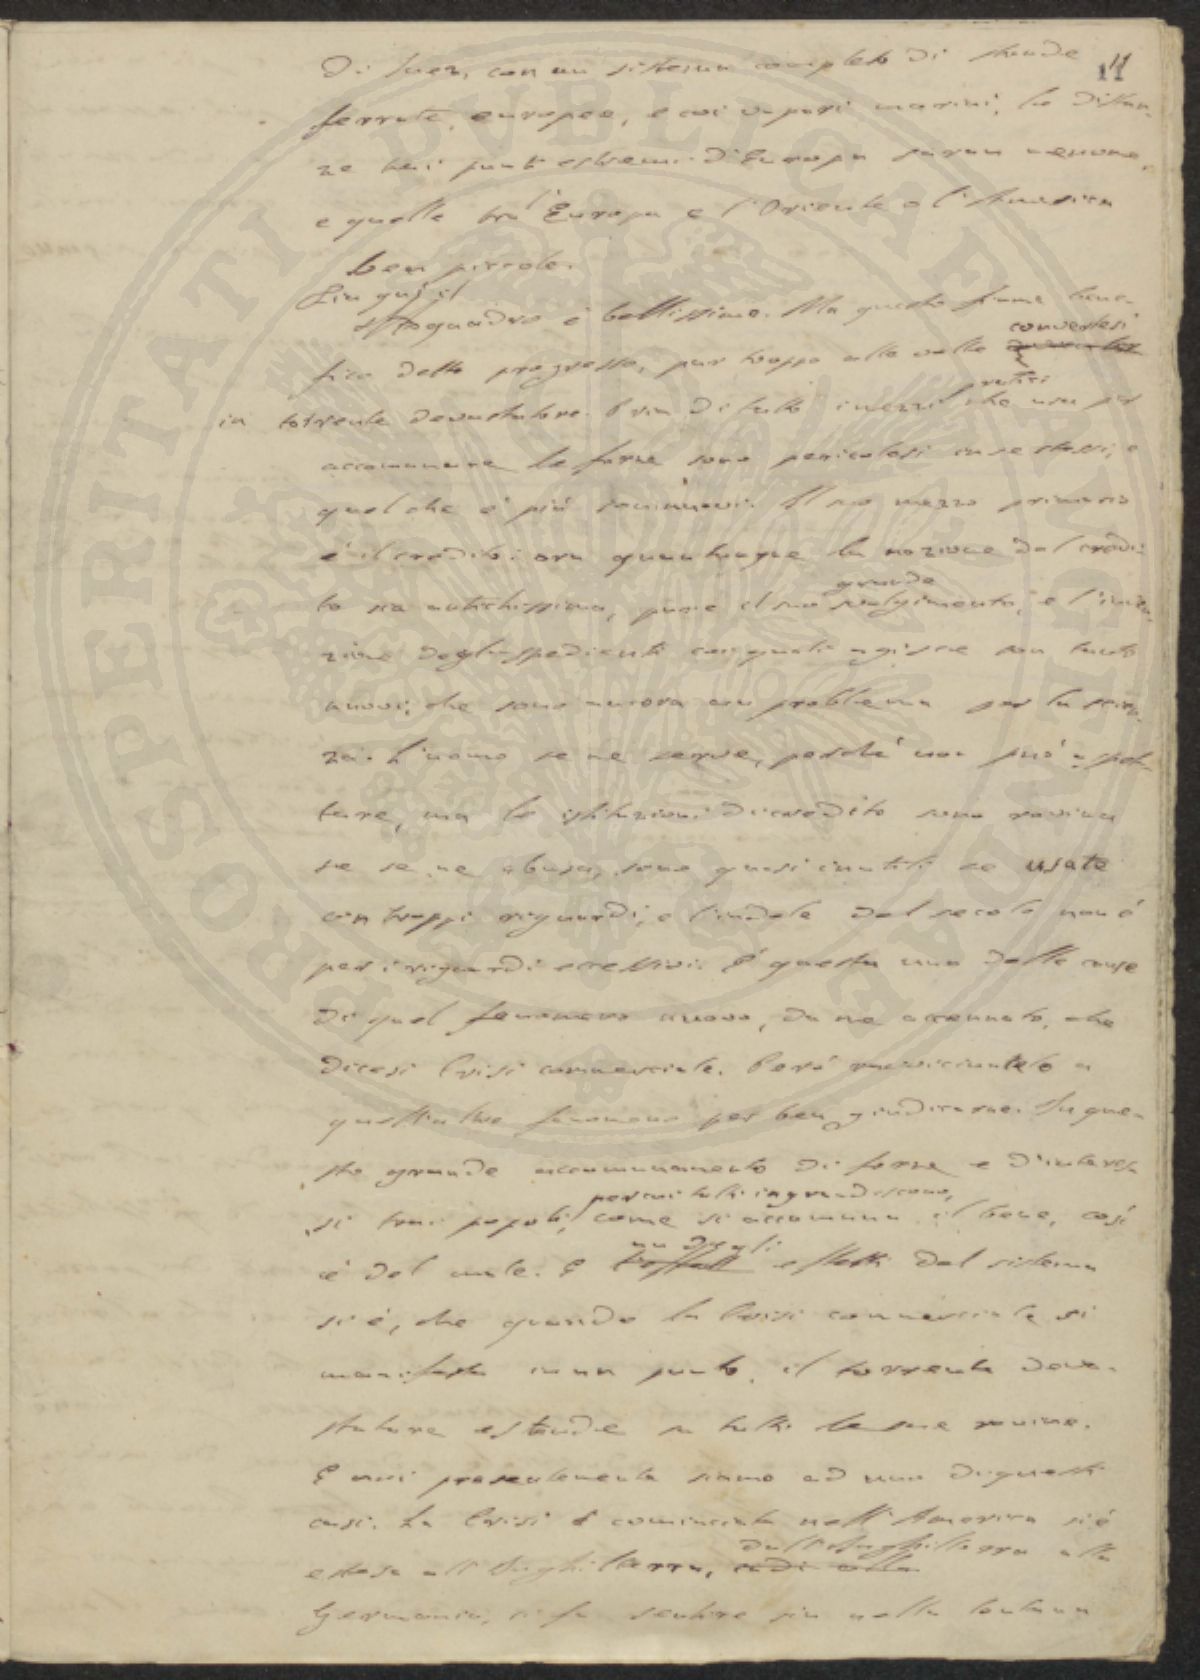 11
di Suez, con un sistema completo di strade
ferrate, europee, e coi vapori marini, le distan-
ze tra i punti estremi d'Europa saran nessune,
e quelle tra l'Europa e l'Oriente e l'America
ben piccole.
Fin qui il
quadro è bellissimo. Ma questo fiume bene-
convertesi
fico detto progresso, pur troppo alle volte
pratici
in torrente devastatore. Pria di tutto i mezzi che usa per
accomunare le forze sono pericolosi in se stessi, e
quel che è più son nuovi. Il suo mezzo primario
è il credito: ora quantunque la nozione del credi-
grande
to sia antichissima, pure il suo svolgimento, e l'inven-
zione degli espedienti coi quali agisce son tanto
nuovi, che sono ancora un problema per la scien-
za. L'uomo se ne serve, perché non può aspet-
tare, ma le istituzioni di credito sono rovina
se se ne abusa, sono quasi inutili se usate
con troppi riguardi, e l'indole del secolo non è
per i riguardi eccessivi. È questa una delle cause
di quel fenomeno nuovo, da me accennato, che
dicesi Crisi commerciale. Però ravvicinatelo a
quest'altro fenomeno per ben giudicarne. In que-
sto grande accomunamento di forze e d'interes-
per cui tutti ingrandiscono,
si trai popoli, come si accomuna il bene, così
un degli
è del male. E effetti del sistema
si è, che quando la Crisi commerciale si
manifesta in un punto, il torrente deva-
statore estende su tutti le sue rovine.
E noi presentemente siamo ad uno di questi
casi. La Crisi è cominciata nell'America si è
dall'Inghilterra alla
estesa all'Inghilterra,
Germania, si fa sentire sin nella lontana